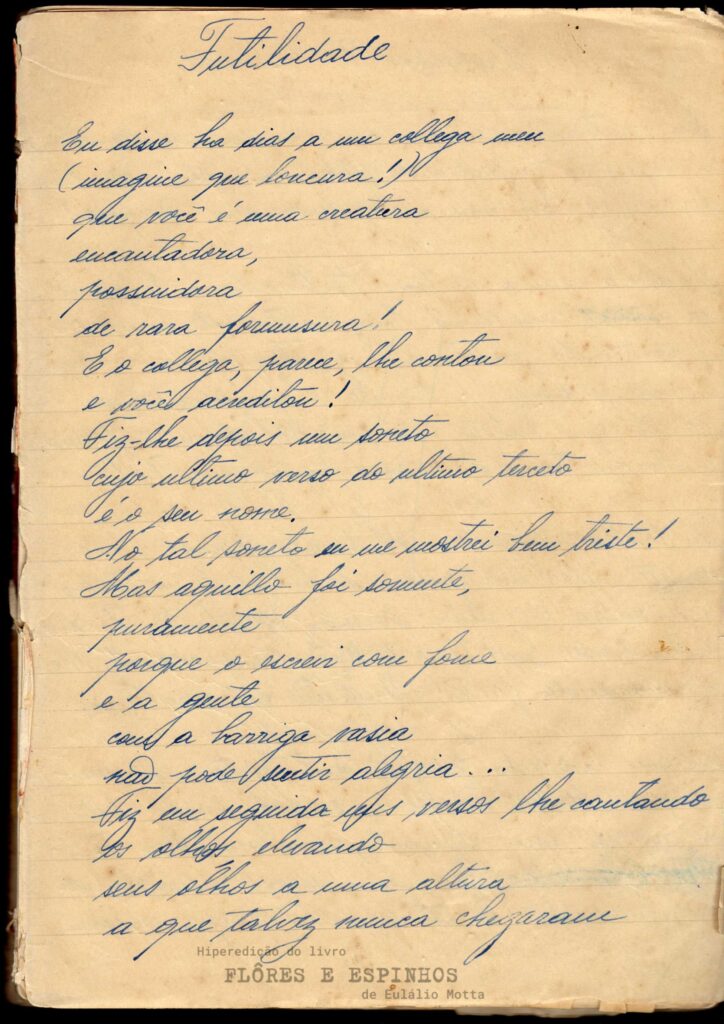 Futilidade
Eu disse ha dias a um collega meu
(imagine que loucura!)
que você é uma creatura
encantadora,
possuidora
de rara formusura!
E o collega, parece, lhe contou
e você acreditou!
Fiz-lhe depois um soneto
cujo ultimo verso do ultimo terceto
é o seu nome.
No tal soneto eu me mostrei bem triste!
Mas aquillo foi somente,
puramente
porque o escrevi com fome
e a gente
com a barriga vasia
não pode sentir alegria...
Fiz em seguida uns versos lhe cantando
os olhos, elevando
seus olhos a uma altura
a que talvez nunca chegaram
Hiperedição do livro
FLÔRES E ESPINHOS
de Eulálio Motta